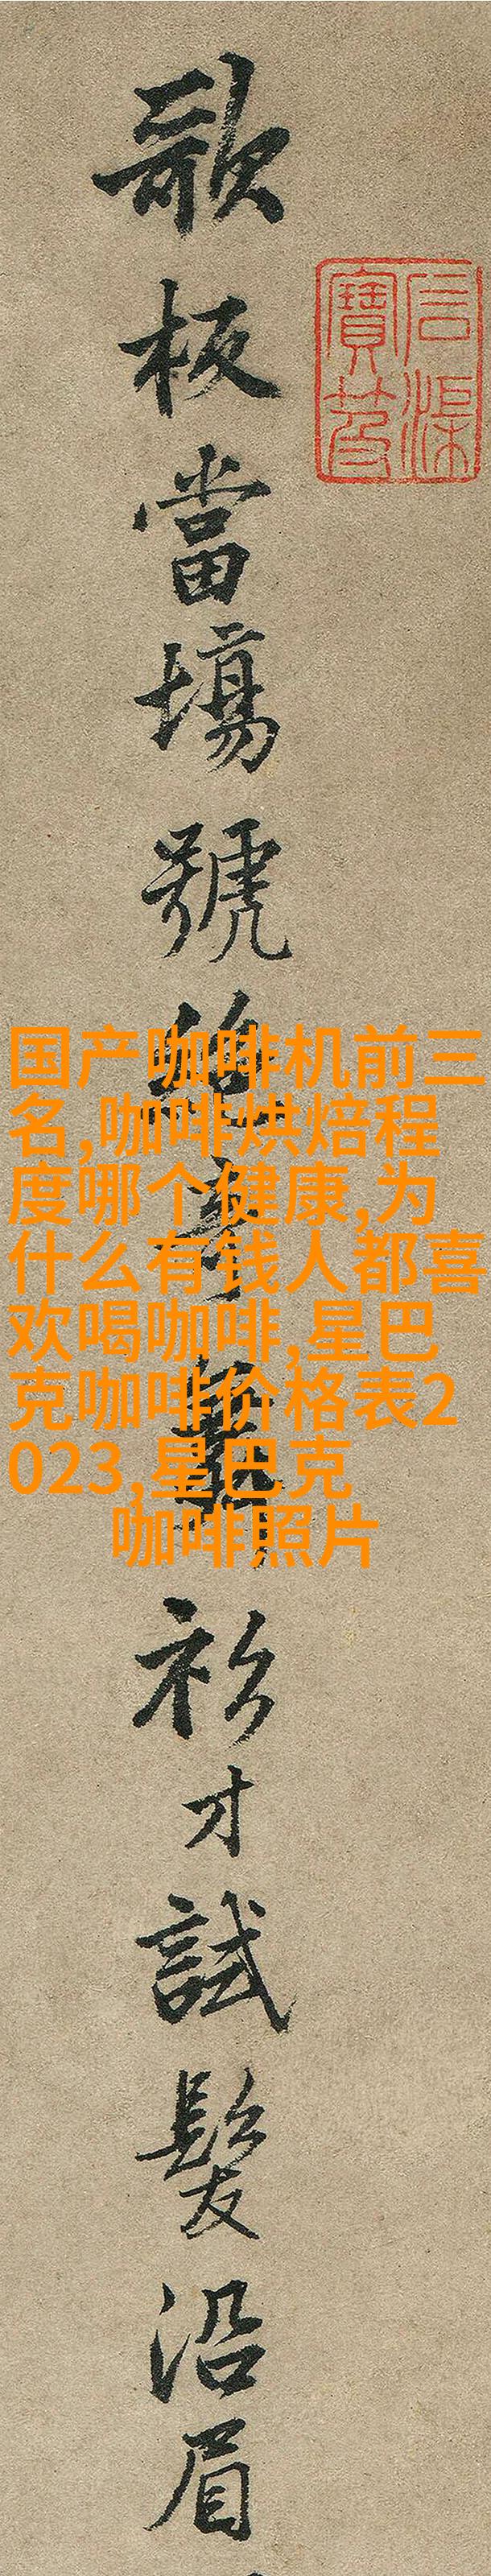 歌板當場號絕奇舞衫才試髮沿眉
石渠
寶笈
国产咖啡机前三
名,咖啡烘焙程
度哪个健康,为
什么有钱人都喜
欢喝咖啡,星巴
克咖啡价格表2
023,星巴克
咖啡照片